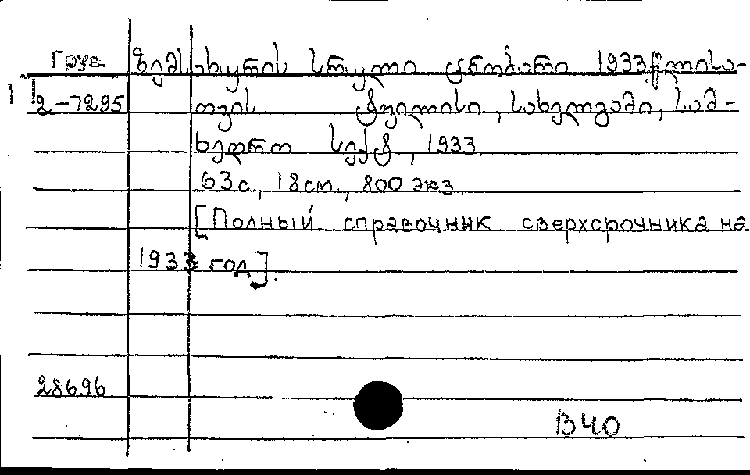 Груз. ზემსახურის სრული ცნობარი 1933 წლისა-
2-7295 თვის ტფილისი, სახელგამი, სამ-
ხედრო სექტ., 1933
63с., 18см., 800 экз.
[Полный справочник сверхсрочника на
1933 год].
28696
В40